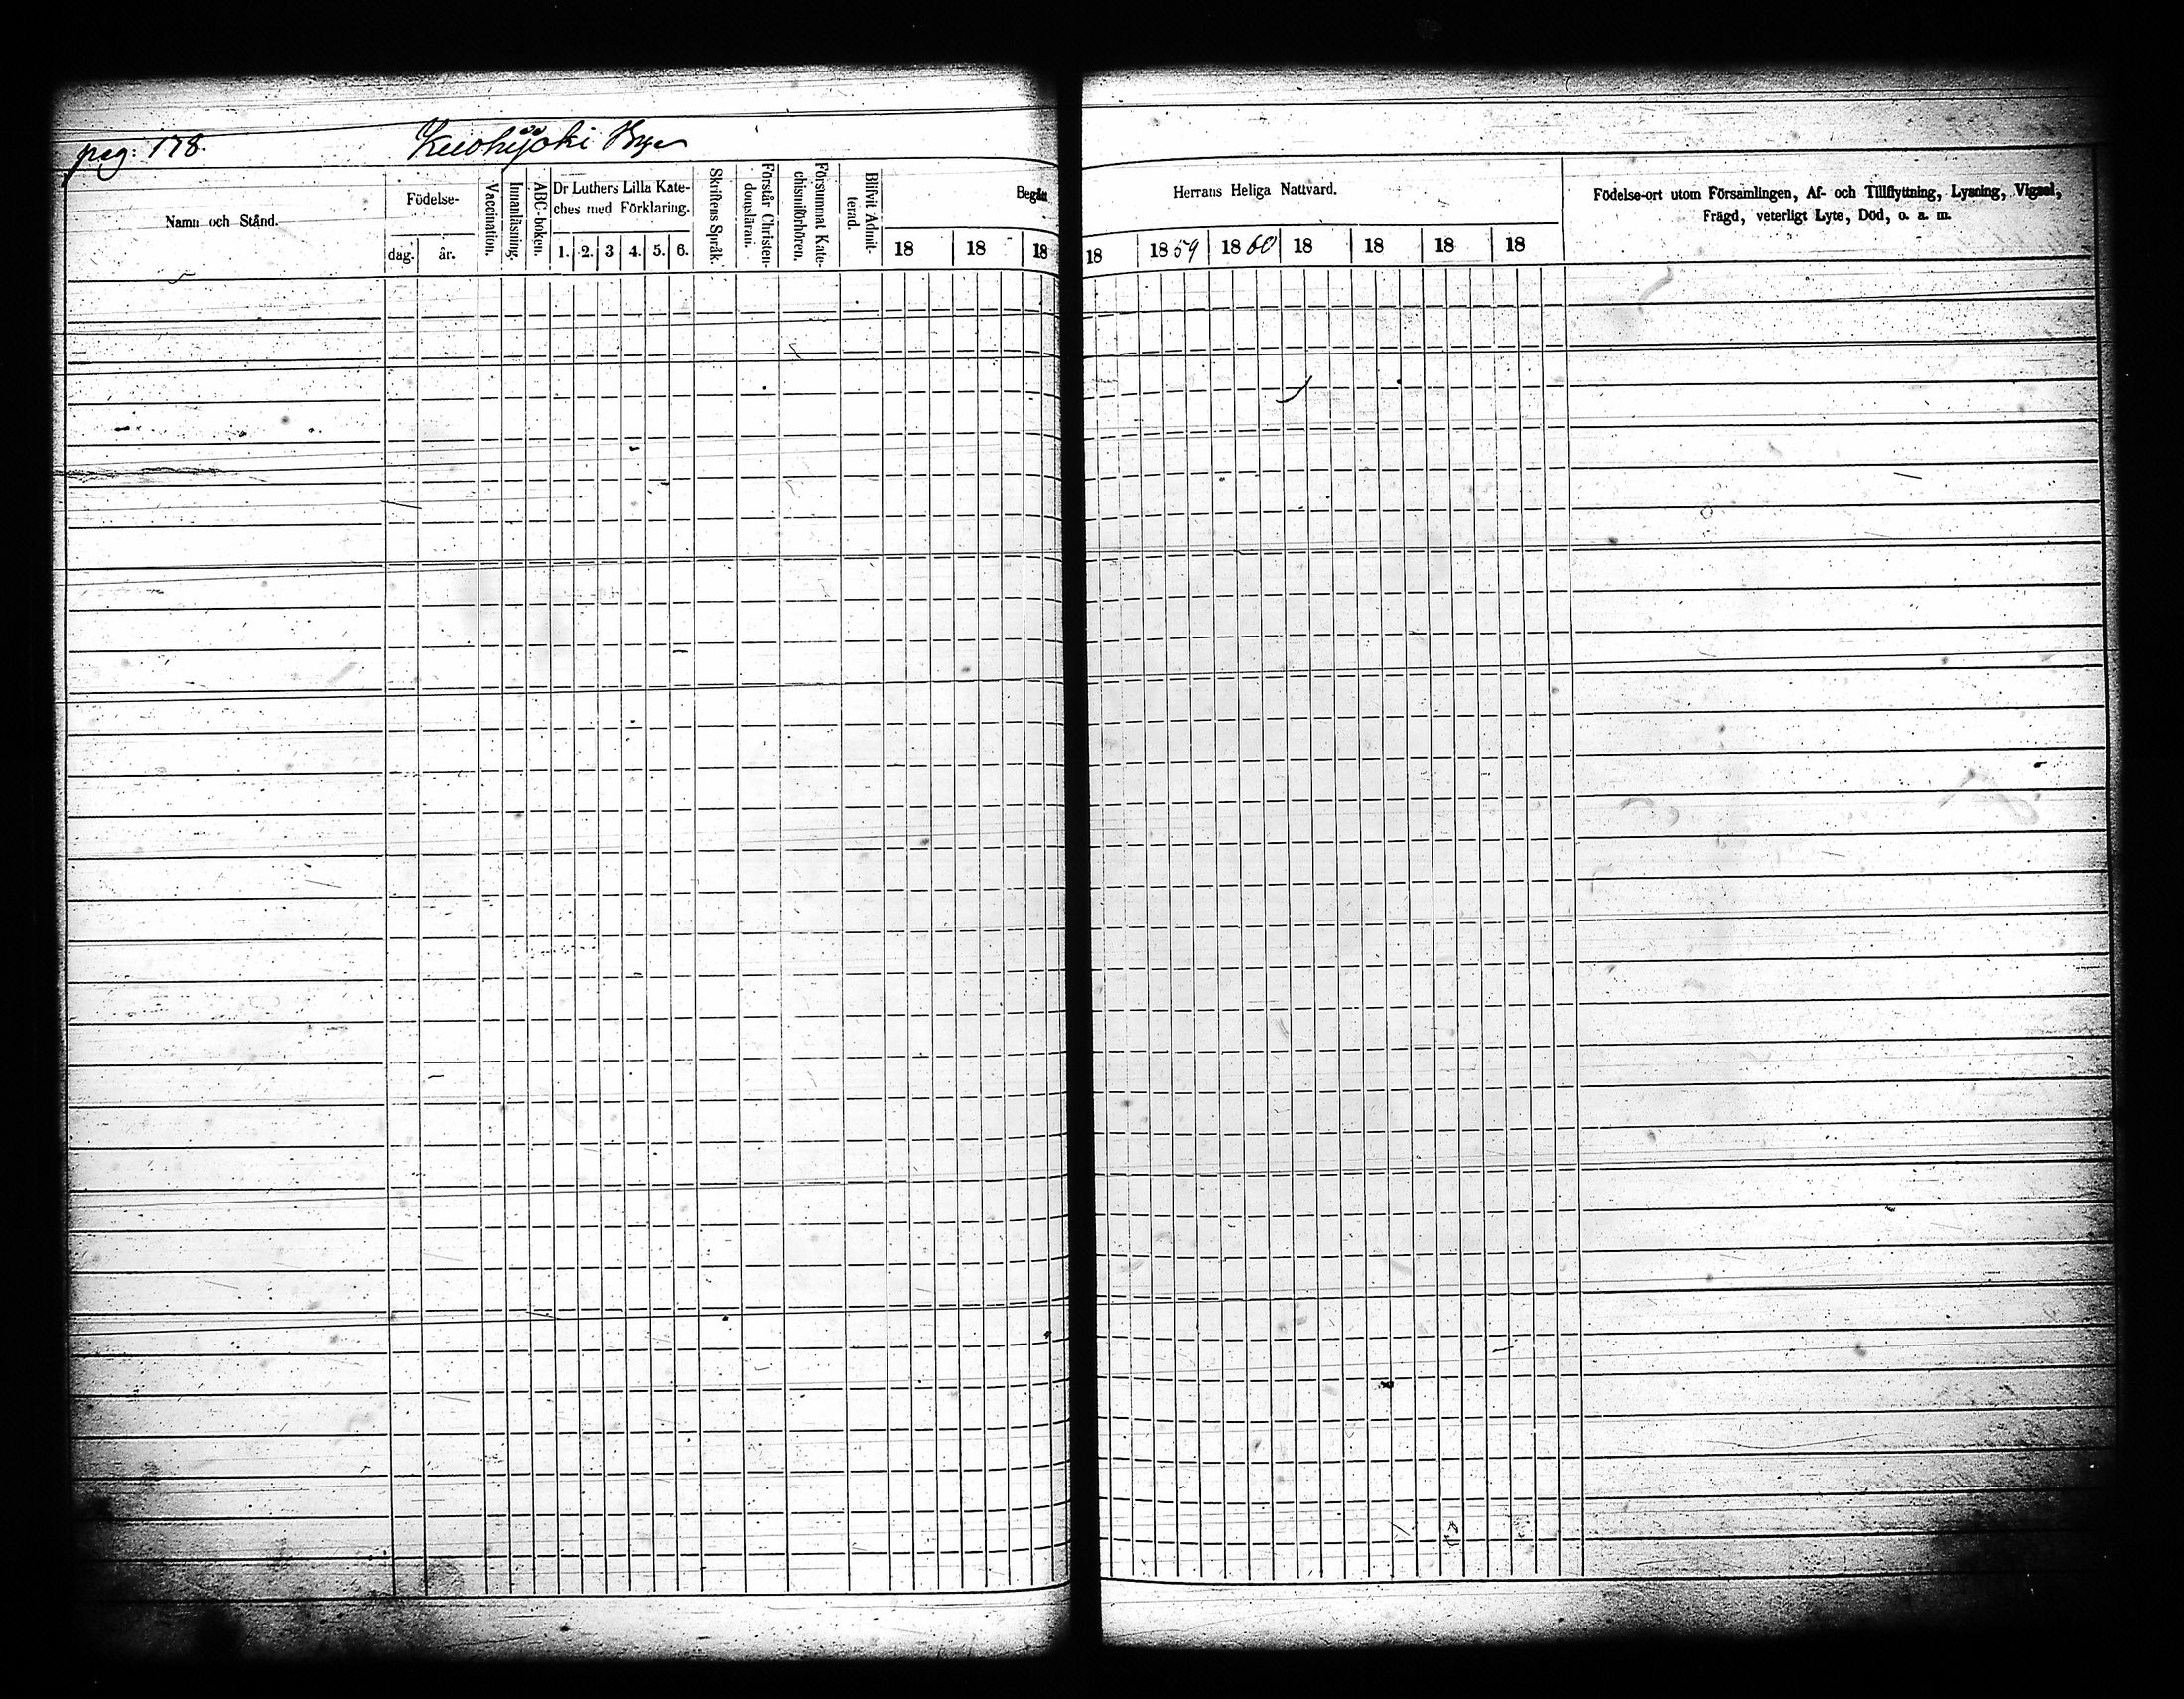 pag: 178. Kuohijoki By
Namn och Stånd.
Födelse-
dag. år.
Vaccination.
Innanläsning.
ABC-boken.
Dr Luthers Lilla Kate-
ches med Förklaring.
1. 2. 3 4. 5. 6.
Skriftens Språk.
Förstår Christen-
domsläran.
Försummat Kate-
chismiförhören.
Blifvit Admit-
terad.
Begått
18 18 18
Herrans Heliga Nattvard.
18 1859 1860 18 18 18 18
Födelse-ort utom Församlingen, Af- och Tillflyttning, Lysning, Vigsel,
Frägd, veterligt Lyte, Död, o. a. m.